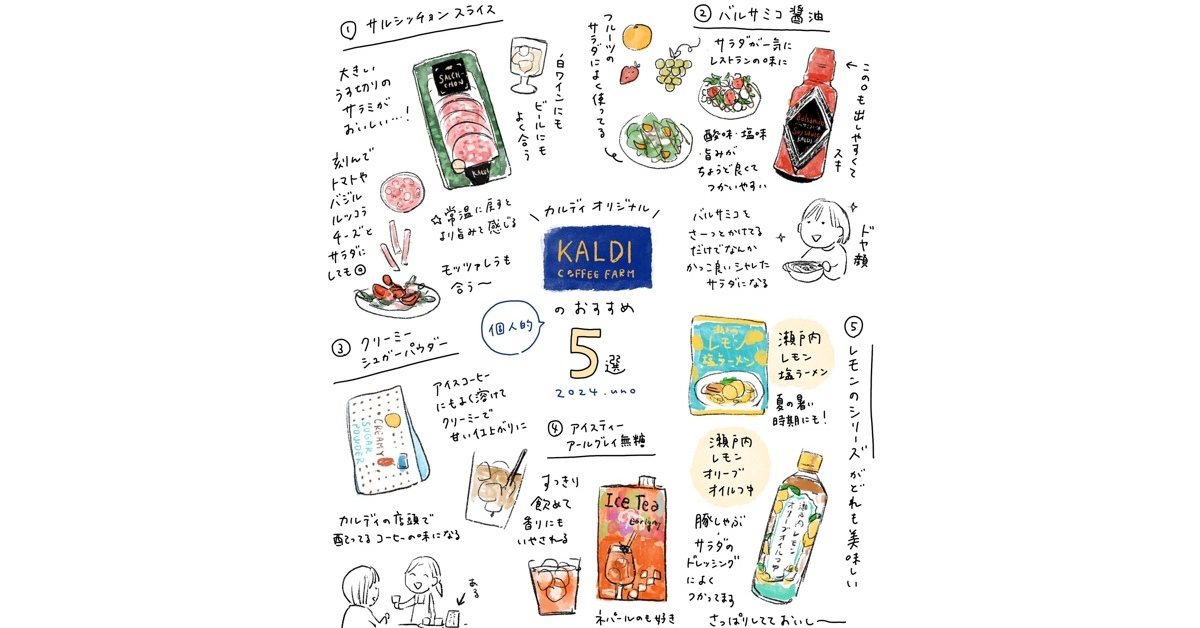 カルディ オリジナル
KALDI
COFFEE FARM
のおすすめ
個人的
5選
2024.uno
① サルシッチョン スライス
大きい
うす切りの
サラミが
おいしい…!
SALCHICHON
KALDI
白ワインにも
ビールにも
よく合う
刻んで
トマトや
バジル
ルッコラ
チーズと
サラダに
しても◎
☆常温に戻すと
より旨みを感じる
モッツァレラも
合う〜
② バルサミコ醤油
フルーツの
サラダによく使ってる
サラダが一気に
レストランの味に
酸味・塩味
・旨みが
ちょうど良くて
つかいやすい
Soy sauce
KALDI
スキ
バルサミコを
さーっとかけてる
だけでなんか
かっこ良いシャレた
サラダになる
ドヤ顔
③ クリーミー
シュガーパウダー
アイスコーヒー
にもよく溶けて
クリーミーで
甘い仕上がりに
CREAMY
SUGAR
POWDER
カルディの店頭で
配ってるコーヒーの味になる
ある
④ アイスティー
アールグレイ無糖
すっきり
飲めて
香りにも
いやされる
Ice Tea
Earlgrey
ネパールのも好き
⑤ レモンのシリーズがどれも美味しい
レモン
塩ラーメン
瀬戸内
レモン
塩ラーメン
夏の暑い
時期にも!
瀬戸内
レモン
オリーブ
オイルつゆ
瀬戸内レモン
オリーブオイルつゆ
豚しゃぶ・
サラダの
ドレッシング
によく
つかってます
さっぱりしてておいし〜